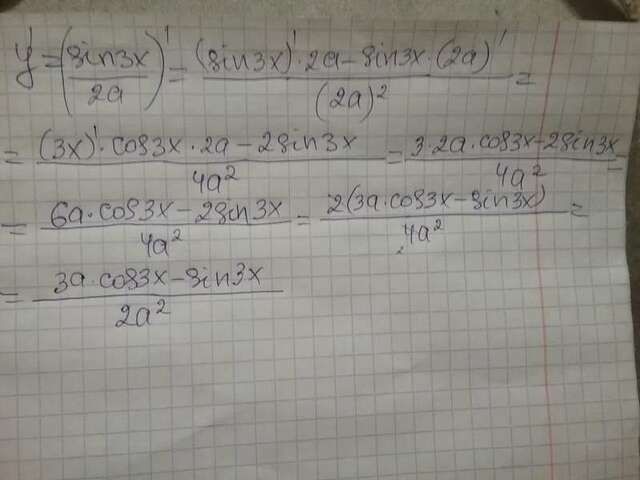 y' = (sin3x / 2a)' = ((sin3x)'·2a - sin3x·(2a)') / (2a)² =
= ((3x)'·cos3x·2a - 2sin3x) / 4a² = (3·2a·cos3x - 2sin3x) / 4a² =
= (6a·cos3x - 2sin3x) / 4a² = 2(3a·cos3x - sin3x) / 4a² =
= (3a·cos3x - sin3x) / 2a²